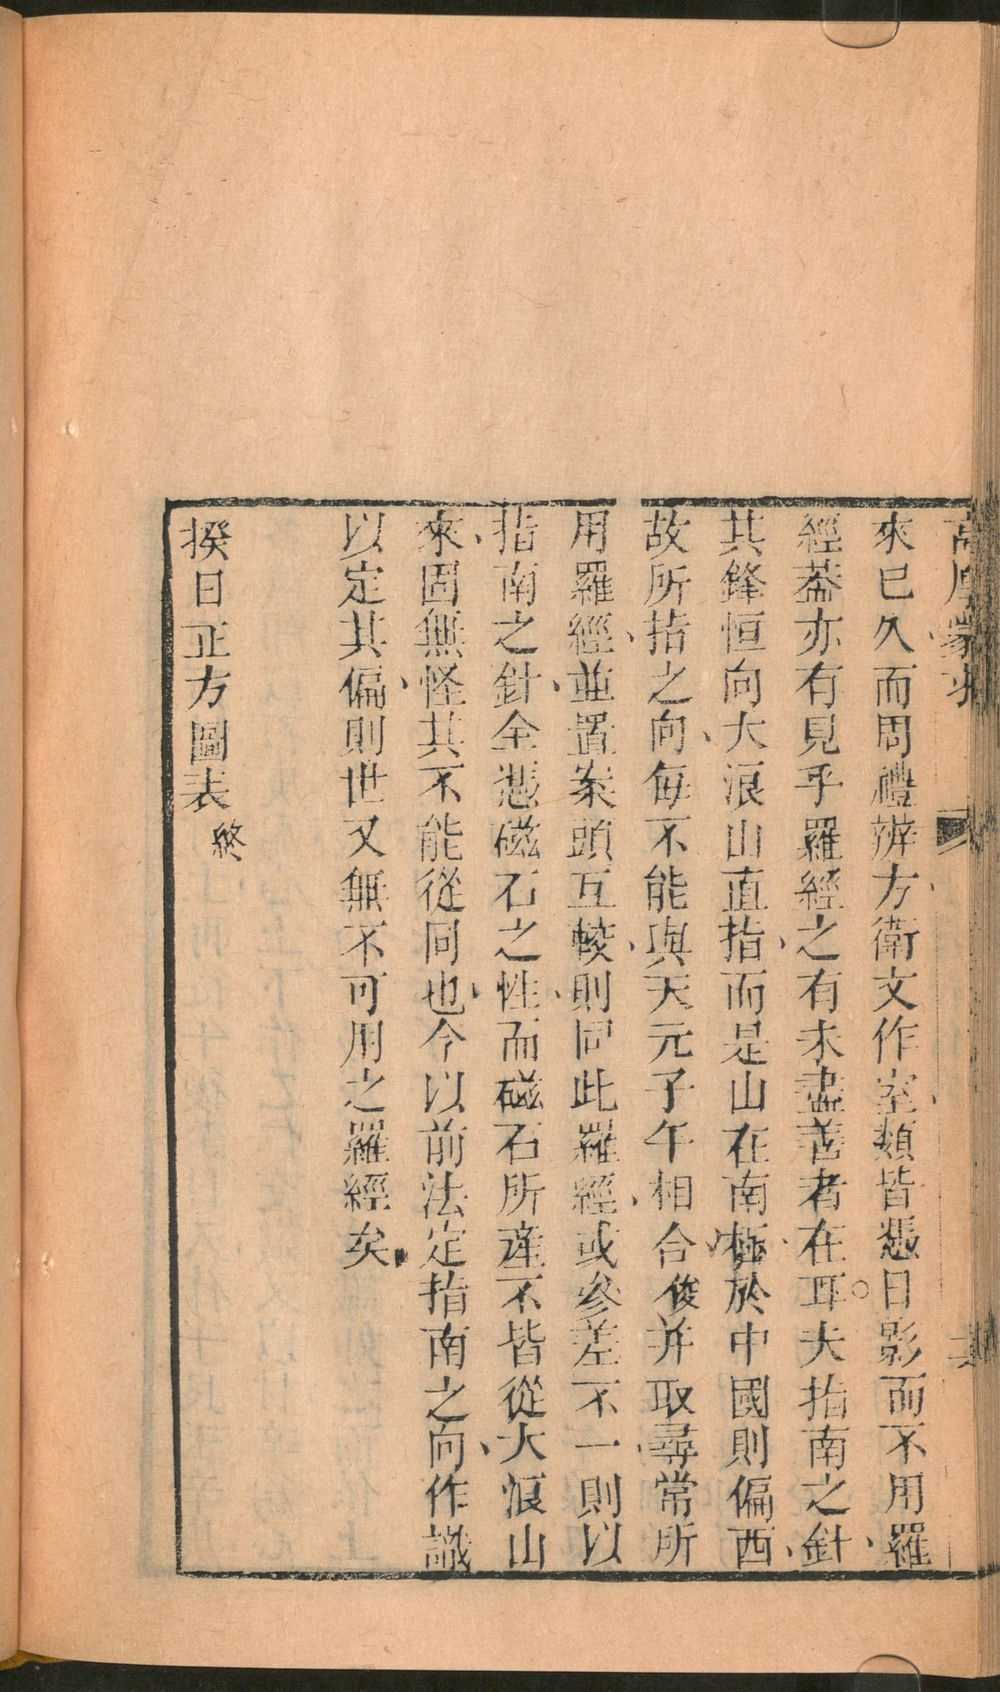 來已久而周禮辨方衛文作室類皆憑日影而不用羅
經葢亦有見乎羅經之有未盡善者在耳夫指南之針
其鋒恒向大浪山直指而是山在南極於中國則偏西
故所指之向每不能與天元子午相合後并取尋常所
用羅經並置案頭互較則同此羅經或參差不一則以
指南之針全憑磁石之性而磁石所產不皆從大浪山
來固無怪其不能從同也今以前法定指南之向作識
以定其偏則世又無不可用之羅經矣
揆日正方圖表終